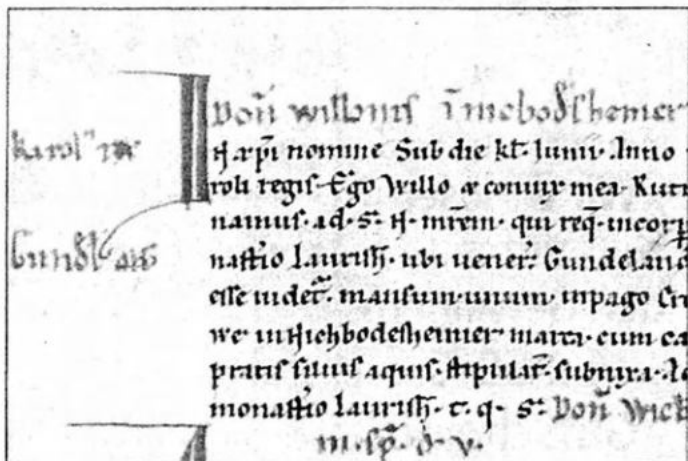 karol' rex
Gundl' abb
Don̄ willonis ī mebodeshemer
IN xp̄i nomine Sub die kl̄. Iunii. Anno
roli regis. Ego Willo & coniux mea. Rutt
namus. ad. s. N. mr̄em. qui req̄. incorp
nast̄io Laurish̄. ubi uener. Gundeland
esse uidet̄. mansum unum inpago
we in Nichbodesheimer marca. cum
pratis siluis aquis. stipulat̄. subnixa. Ac
monast̄io Laurish̄. t. q. s. Don̄ Wick